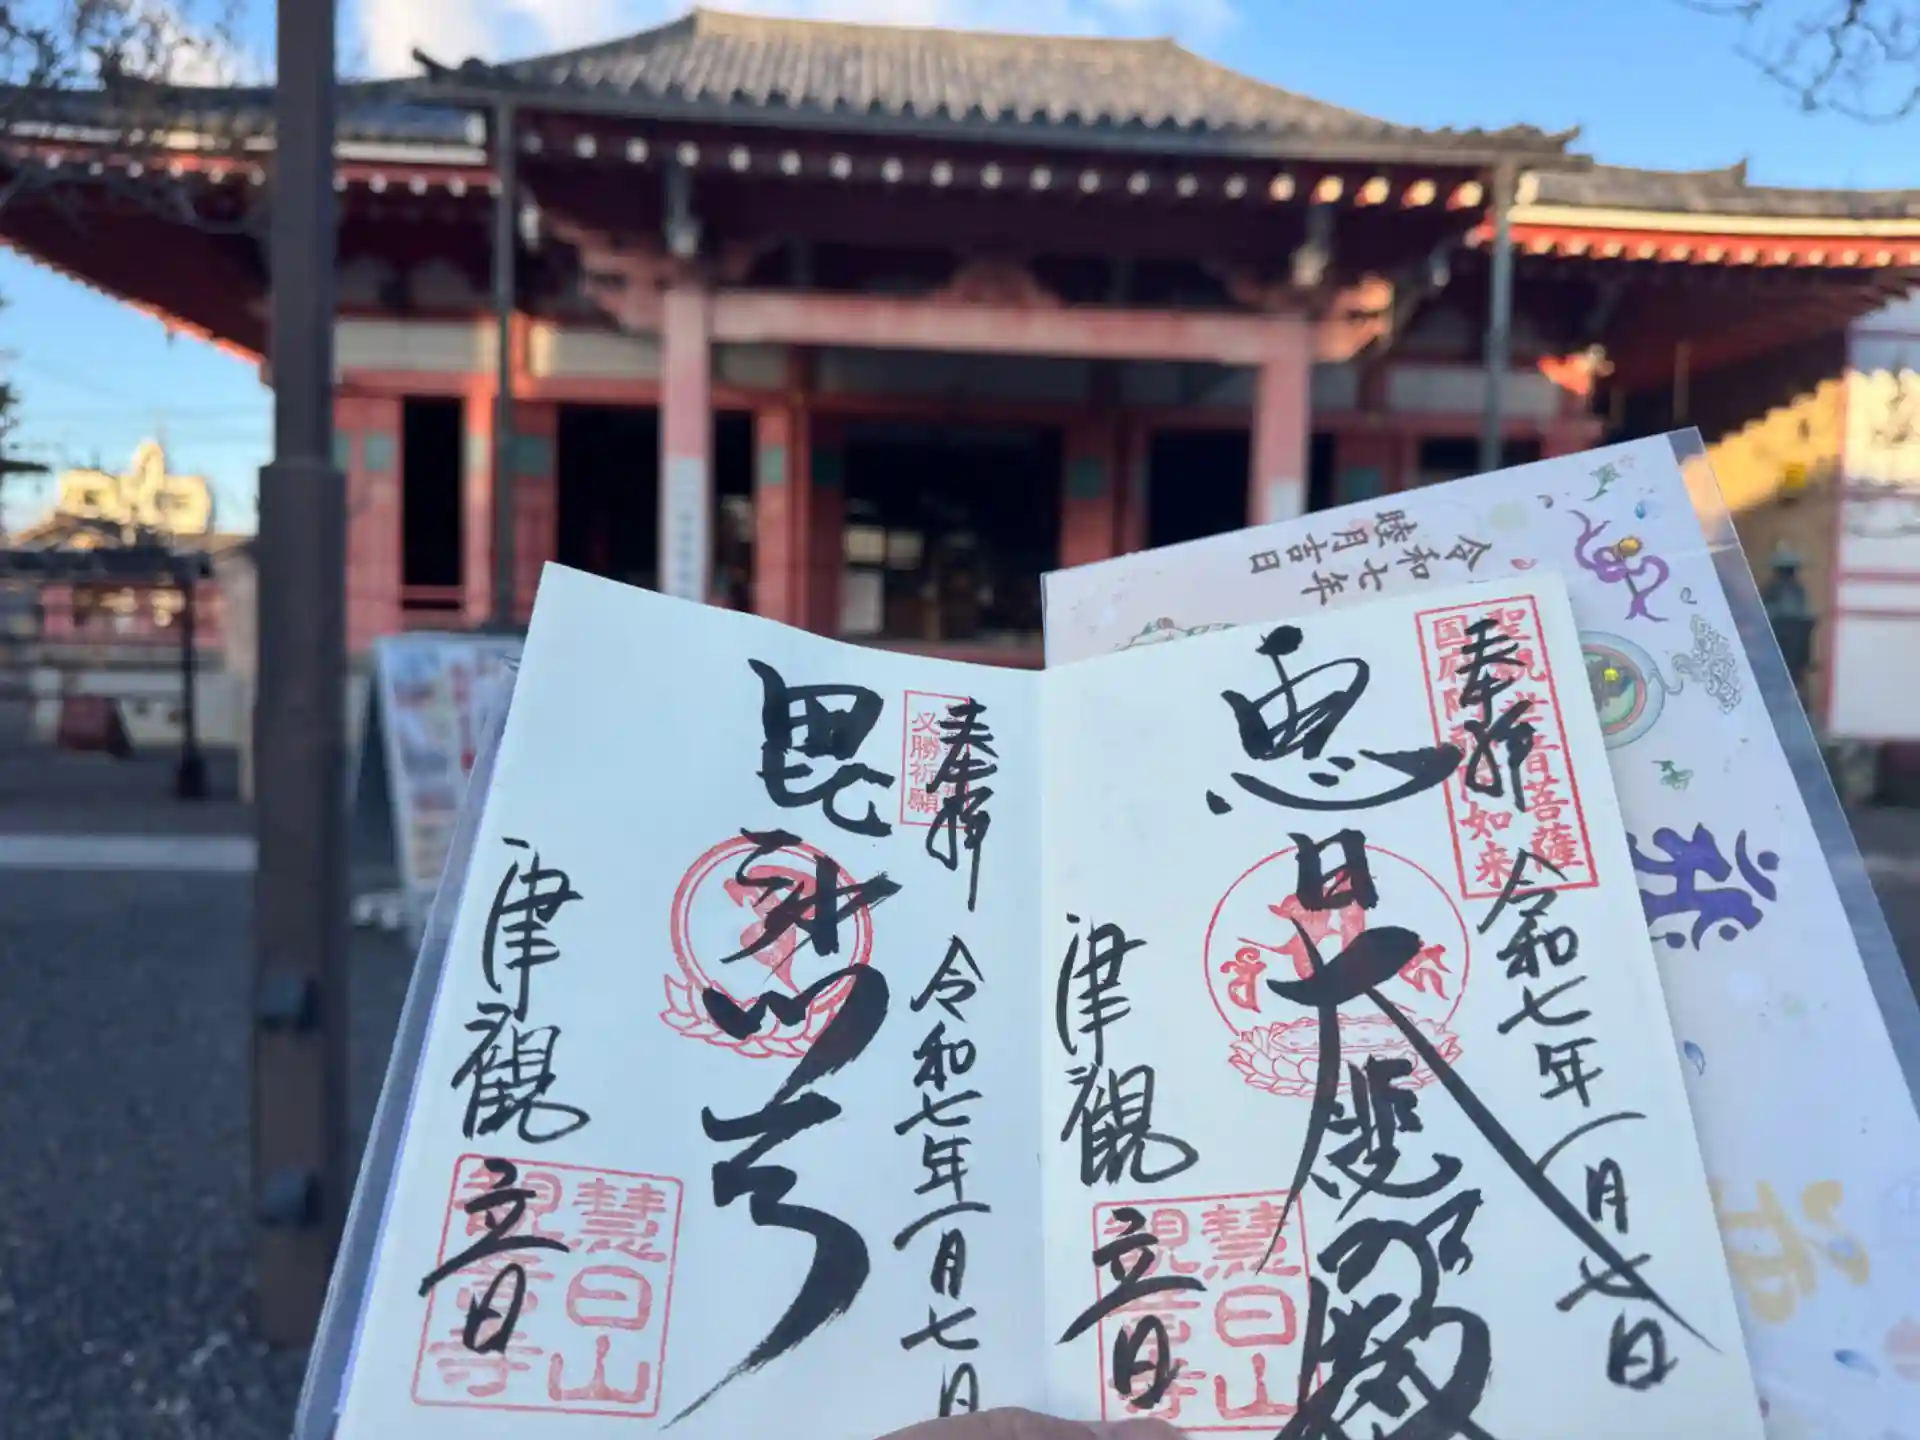 奉拝
聖観世音菩薩
国府阿弥陀如来
恵日大悲閣
令和七年一月七日
津観音
慧日山
観音寺
奉拝
必勝祈願
毘沙門天
令和七年一月七日
津観音
慧日山
観音寺
令和七年
睦月吉日